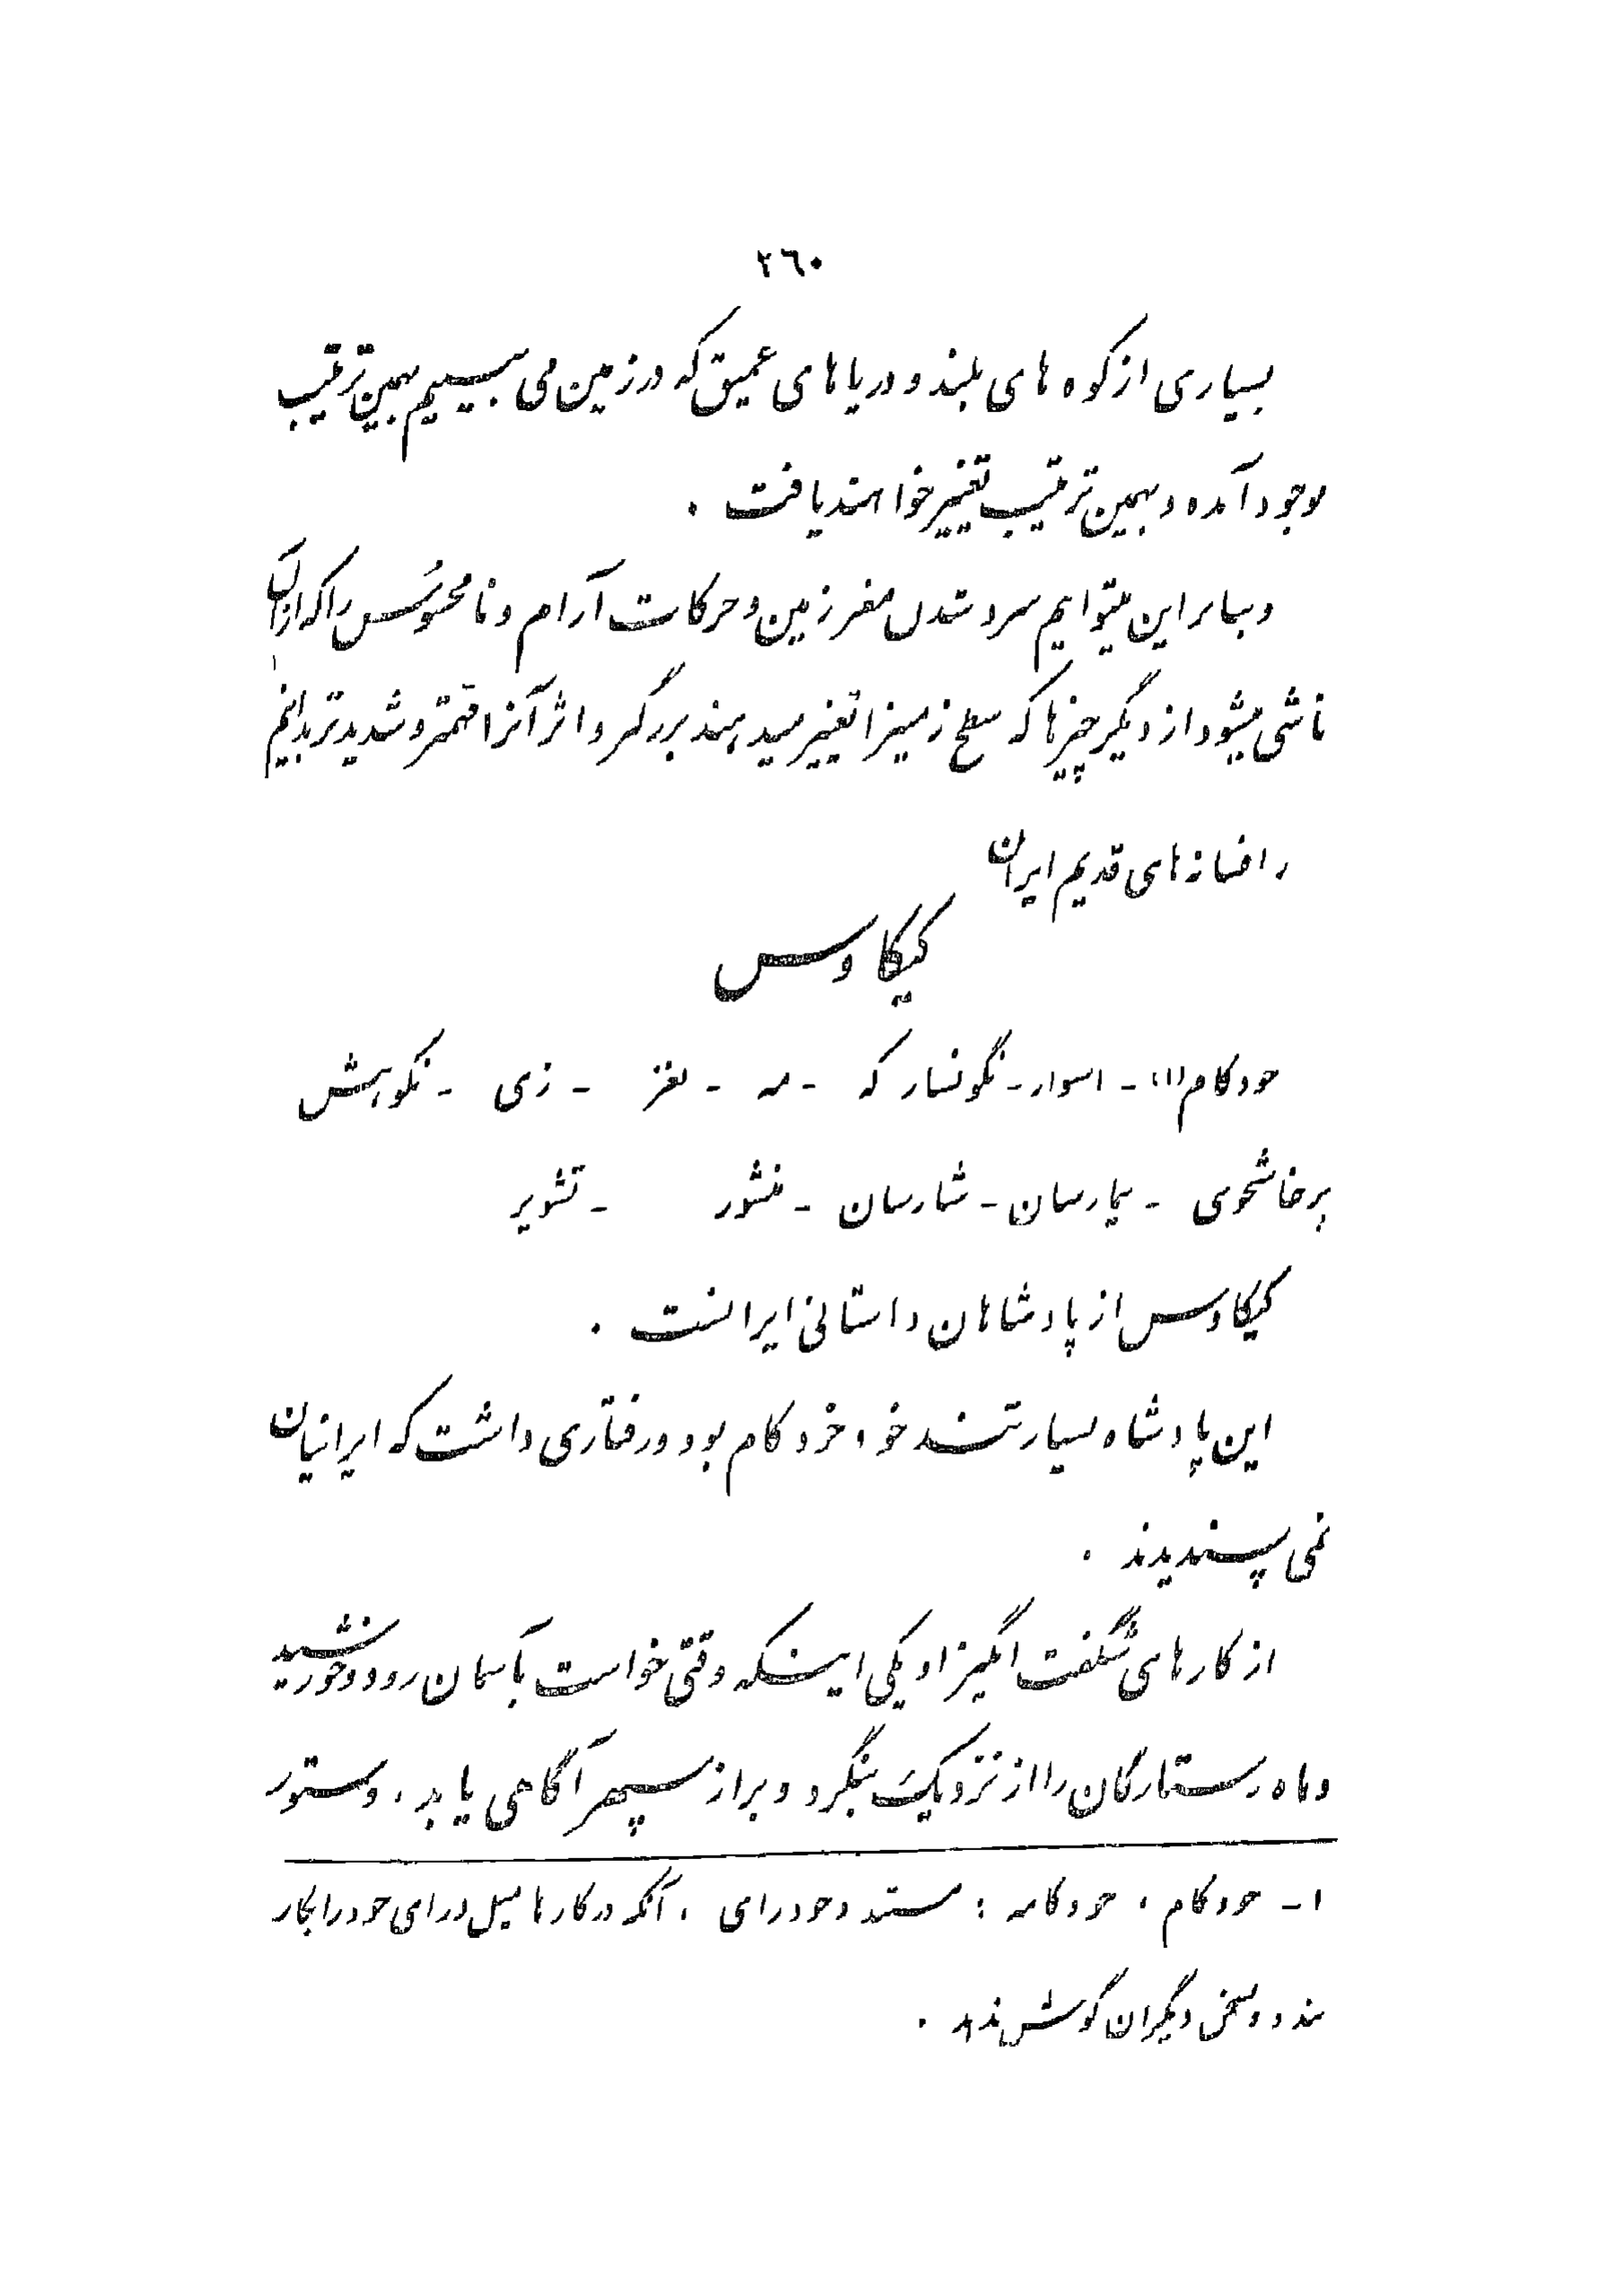 ٢٦٠
بسیاری از کوه های بلند و دریا های عمیق که در زمین می بینیم بهمین ترتیب
بوجود آمده و بهمین ترتیب تغییر خواهند یافت .
و بنابراین میتوانیم سرد شدن مغز زمین و حرکات آرام و نامحسوس را که از آن
ناشی میشود از دیگر چیزها که سطح زمین را تغییر میدهند بزرگتر و اثر آنرا مهمتر و شدیدتر بدانیم
از افسانه های قدیم ایران
کیکاوس
خودکام (۱) - اسوار - نگونسار که - مه - نغز - زی - نکوهش
پرخاشجوی - بیمارسان - شارسان - منشور - تشویر
کیکاوس از پادشاهان داستانی ایرانست .
این پادشاه بسیار تندخو و خودکام بود و رفتاری داشت که ایرانیان
نمی پسندیدند .
از کارهای شگفت انگیز او یکی اینکه وقتی خواست بآسمان رود و خورشید
و ماه و ستارگان را از نزدیک بنگرد و براز سپهر آگاهی یابد ، دستور
۱ - خودکام ، خودکامه : مستبد و خودرای ، آنکه در کارها میل و رای خود را بکار
بندد و بسخن دیگران گوش ندهد .